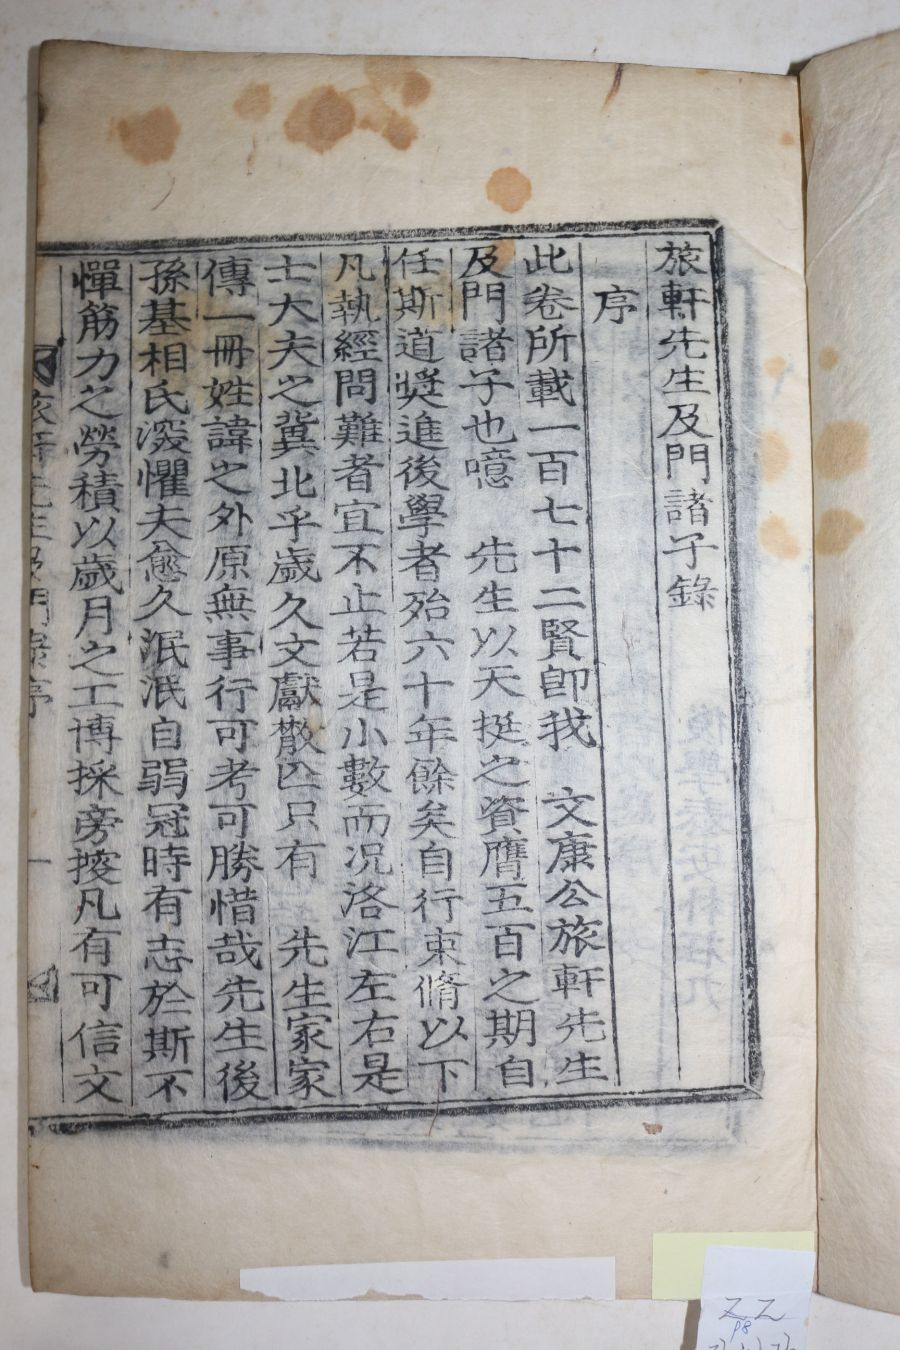 旅軒先生及門諸子錄
序
此卷所載一百七十二賢卽我　文康公旅軒先生
及門諸子也噫　先生以天挺之資膺五百之期自
任斯道奬進後學者殆六十年餘矣自行束脩以下
凡執經問難者宜不止若是小數而况洛江左右是
士大夫之冀北乎歲久文獻散亾只有　先生家家
傳一冊姓諱之外原無事行可考可勝惜哉先生後
孫基相氏深懼夫愈久泯泯自弱冠時有志於斯不
憚筋力之勞積以歲月之工博採旁搜凡有可信文
ZZ
P8